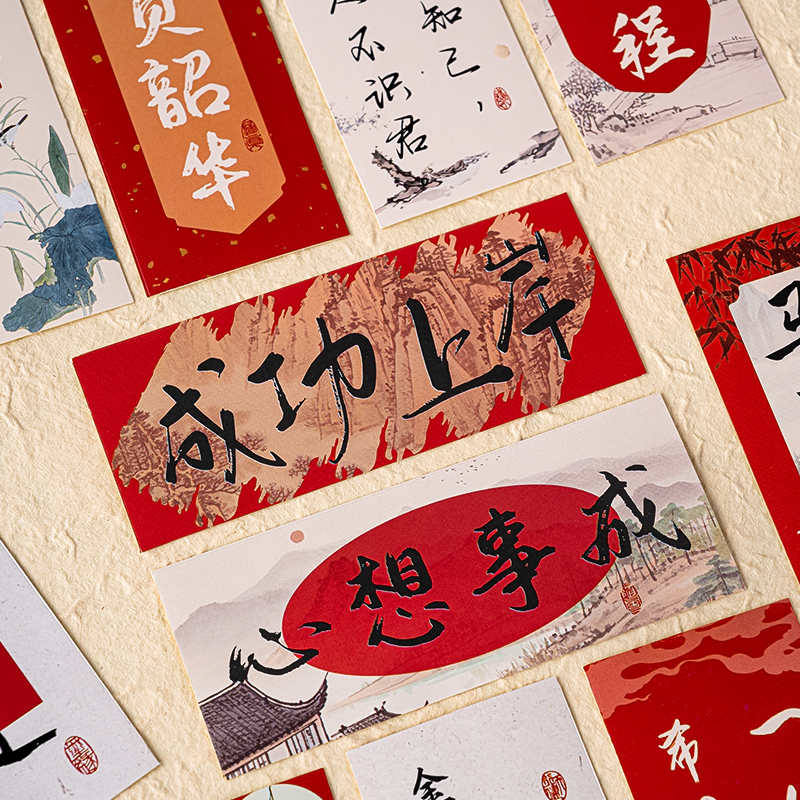 负韶华
知己，
不识君
程
成功上岸
心想事成